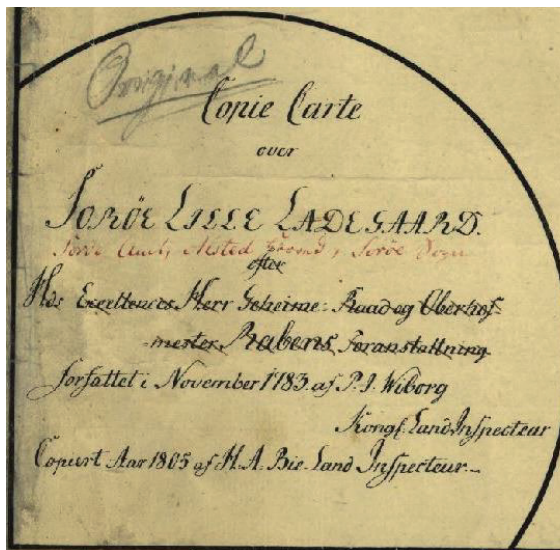 Original
Copie Carte
over
SORÖE LILLE LADEGAARD.
Soröe Amt, Alsted Herred, Soröe Sogn
efter
Hds Excellences Herr Geheime-Raad og Oberhof-
mester Rabens Foranstaltning
forfattet i November 1783. af P. J. Wiborg
Kongl. Land Inspecteur
Copiert Aar 1805 af H. A. Bie Land Inspecteur